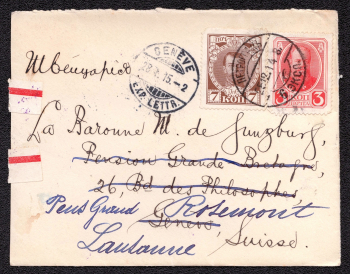 Швейцарія
GENÈVE
EXP. LETTR.
7 КОП 7
3 КОП 3
La Baronne M. de Gunzburg,
Pension Grande Bretagne,
26, Bd des Philosophes
Pens Grand Rosemont
Genève Suisse.
Lausanne